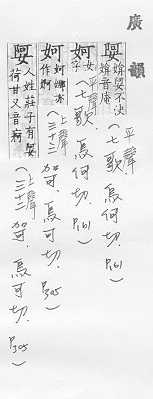 廣韻
娿 媕娿不決
媕音庵
平聲
(七歌. 烏何切. P.161)
妸 女字
平聲
(七歌. 烏何切. P.161)
妸 妸娜亦
作婀
上聲
(三十三 哿. 烏可切. P.305)
娿 人姓莊子有娿
荷甘又音痾
上聲
(三十三 哿. 烏可切. P.305)